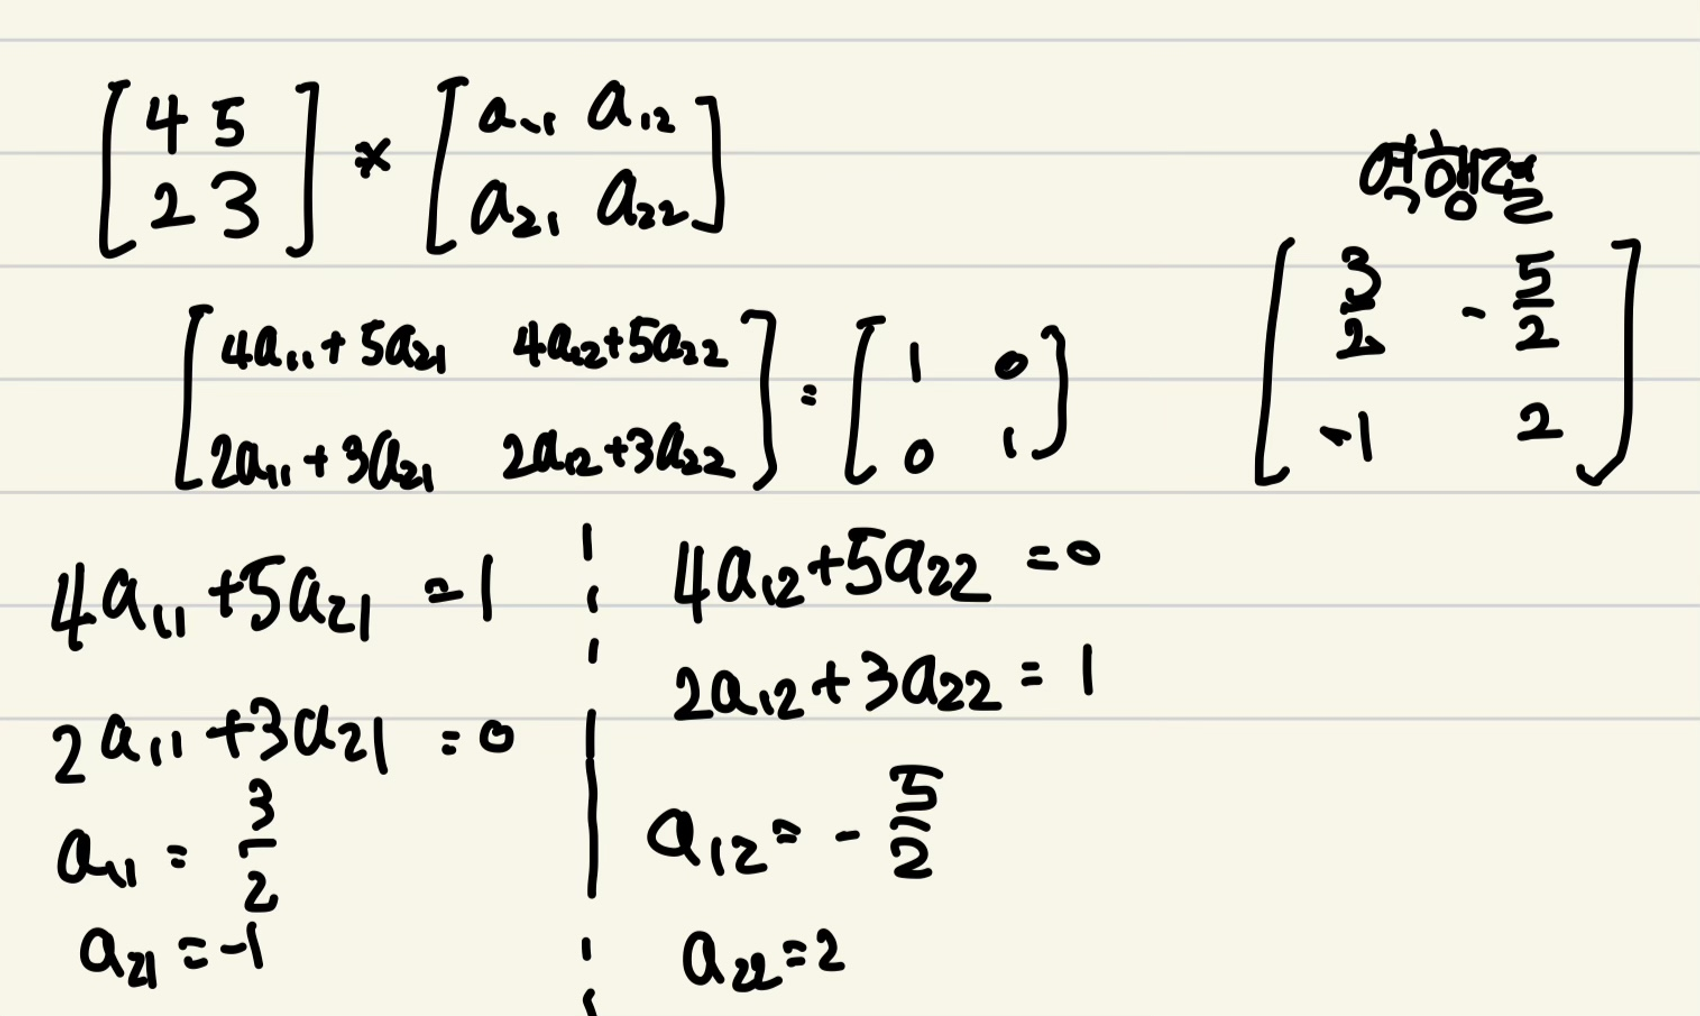 [4 5
2 3] * [a₁₁ a₁₂
a₂₁ a₂₂]
역행렬
[3/2 -5/2
-1 2]
[4a₁₁+5a₂₁ 4a₁₂+5a₂₂
2a₁₁+3a₂₁ 2a₁₂+3a₂₂] = [1 0
0 1]
4a₁₁+5a₂₁ = 1
2a₁₁+3a₂₁ = 0
a₁₁ = 3/2
a₂₁ = -1
4a₁₂+5a₂₂ = 0
2a₁₂+3a₂₂ = 1
a₁₂ = -5/2
a₂₂ = 2